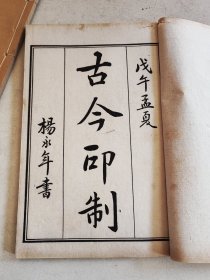 戊午孟夏
古今印制
楊永年書